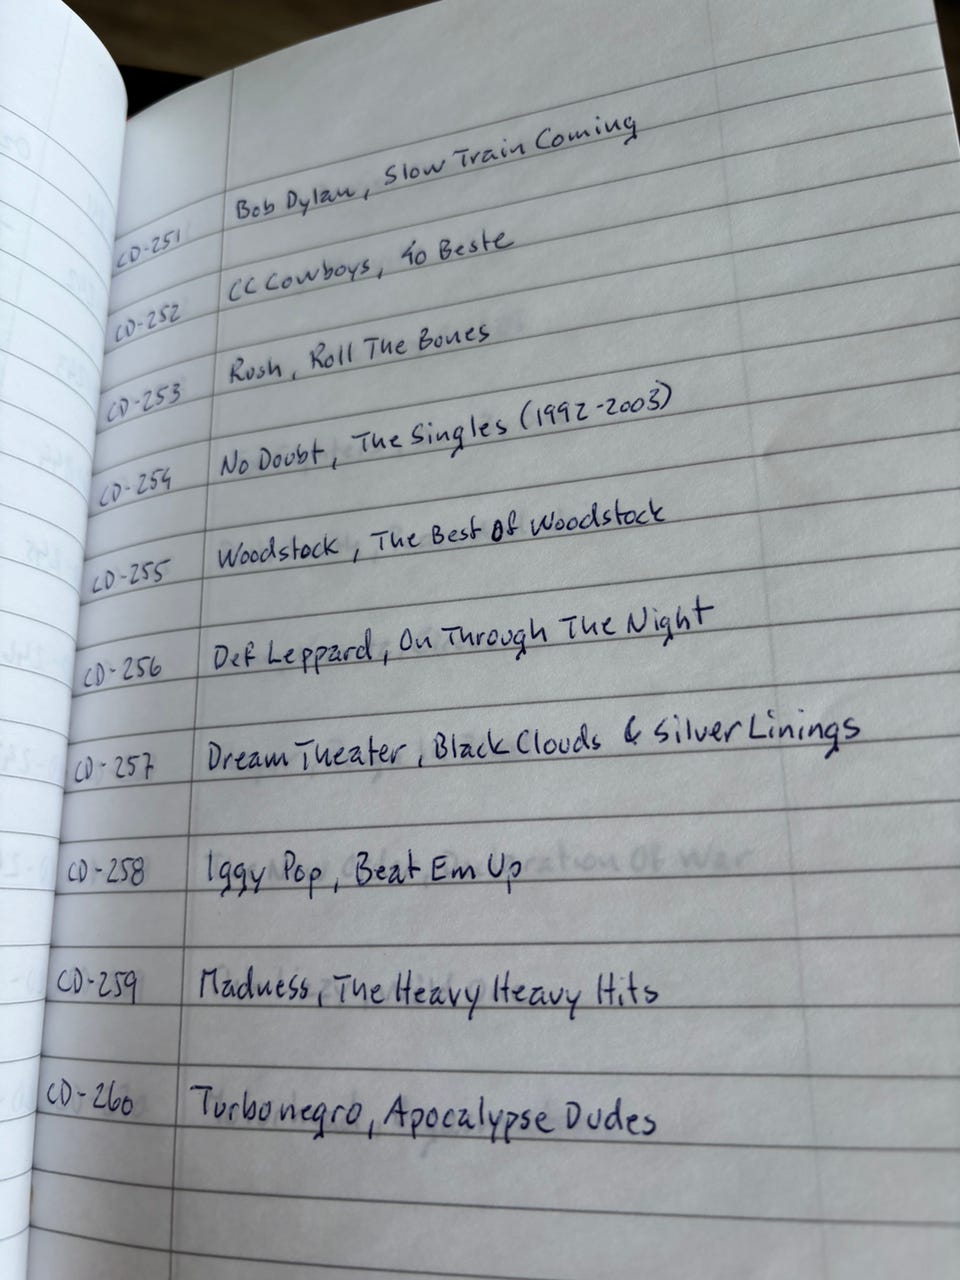 CD-251 Bob Dylan, Slow Train Coming
CD-252 CC Cowboys, 40 Beste
CD-253 Rush, Roll The Bones
CD-254 No Doubt, The Singles (1992-2003)
CD-255 Woodstock, The Best Of Woodstock
CD-256 Def Leppard, On Through The Night
CD-257 Dream Theater, Black Clouds & Silver Linings
CD-258 Iggy Pop, Beat Em Up
CD-259 Madness, The Heavy Heavy Hits
CD-260 Turbonegro, Apocalypse Dudes